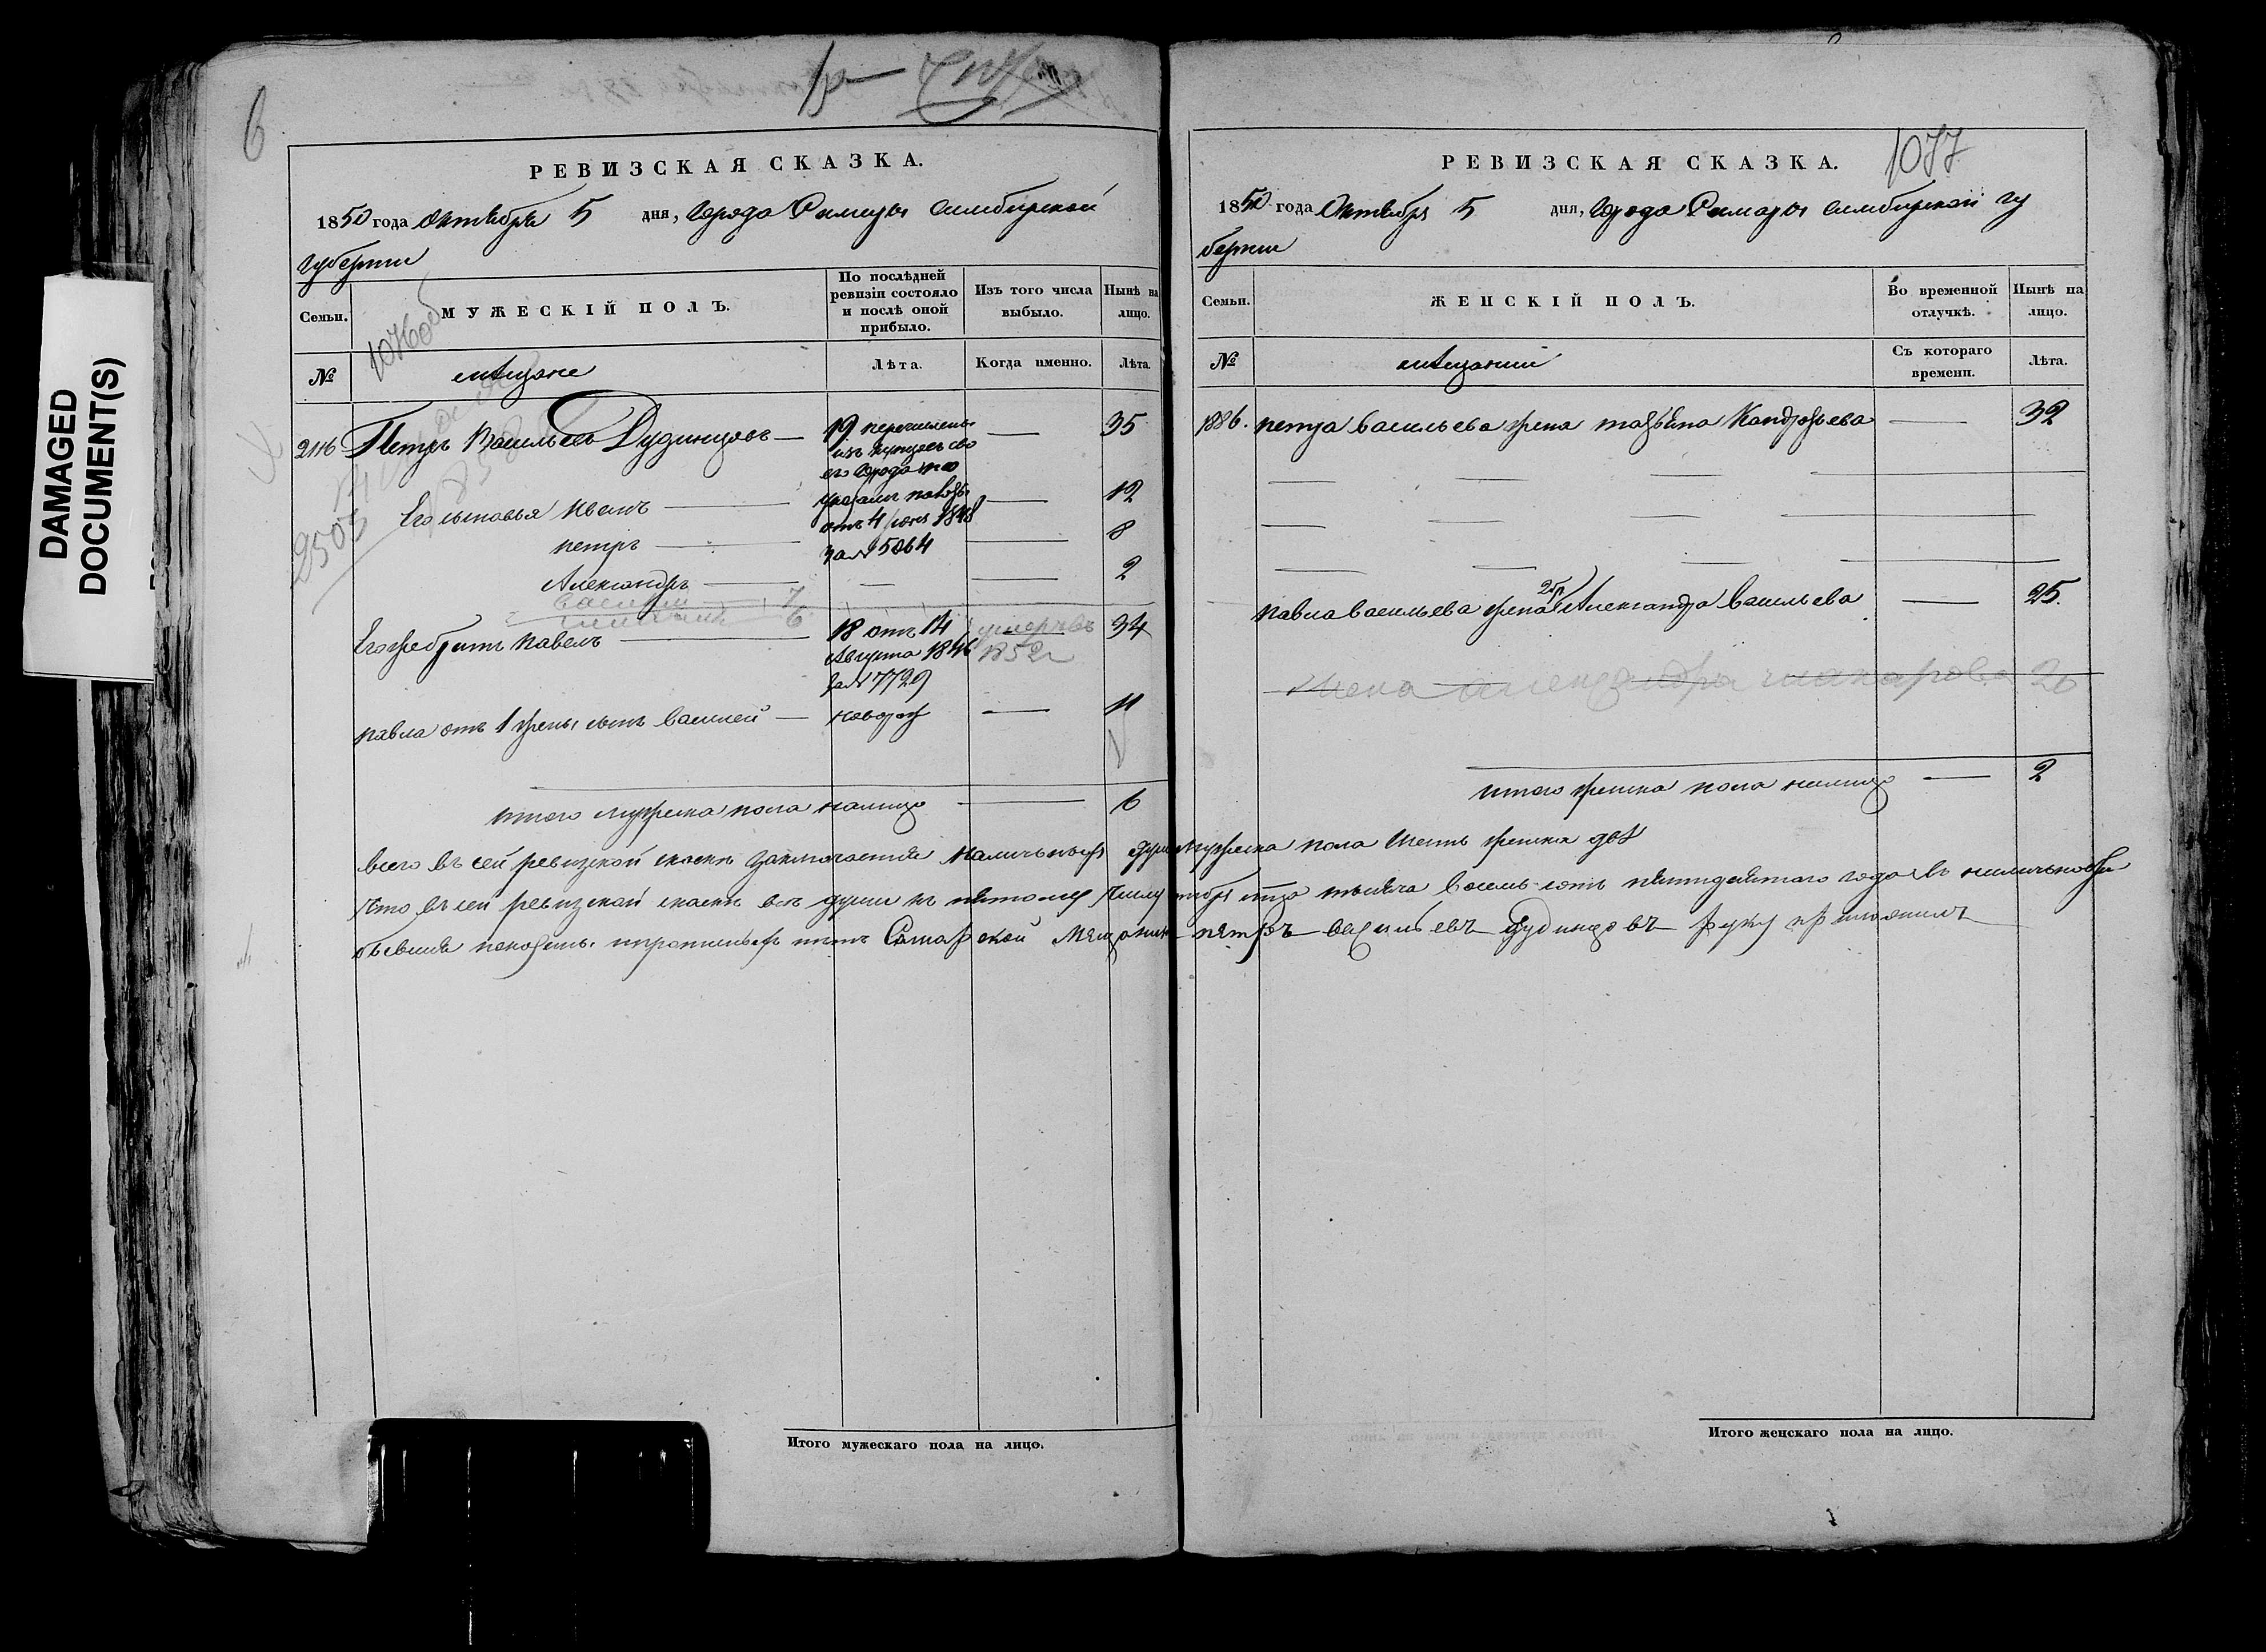 DAMAGED
DOCUMENT(S)
6
РЕВИЗСКАЯ СКАЗКА.
1850 года Октября 5 дня, Города Самары Симбирской
губернии
Семьи.
МУЖЕСКІЙ ПОЛЪ.
По послѣдней
ревизіи состояло
и послѣ оной
прибыло.
Изъ того числа
выбыло.
Нынѣ на
лицо.
№
1076 об
мѣщане
Лѣта.
Когда именно.
Лѣта.
2116 Петръ Васильевъ Дудинцовъ — 19. перечисленъ — 35
изъ купцовъ сво
его города по
указан. палаты
от 4 июня 1848
за № 5864
2503
Его сыновья Иванъ — — 12
петръ — — 8
Александръ — — — 2
василий 7
6
Его же братъ павелъ — 18 отъ 14 умеръ въ 34
Августа 1846 1852 г
за № 7729
павла отъ 1 жены сынъ василей — новорож — 11
итого мужеска пола налицо — 6
РЕВИЗСКАЯ СКАЗКА.
1077
1850 года Октября 5 дня, Города Самары Симбирской гу
бернии
Семьи.
ЖЕНСКІЙ ПОЛЪ.
Во временной
отлучкѣ.
Нынѣ на
лицо.
№
мѣщанки
Съ котораго
времени.
Лѣта.
1886. петра васильева жена татьяна Кондратьева — 32
павла васильева жена 2я Александра васильева — 25.
жена александра макарова 26
итого женска пола налицо — 2
всего въ сей ревизской сказкѣ заключается наличныхъ душъ мужеска пола шесть женска двѣ
Что въ сей ревизской сказкѣ все души къ пятому числу октября тысяча восемь сотъ пятидесятого года въ наличности
бывшия показаны Самарской Мещанинъ петръ васильевъ дудинцовъ руку приложилъ
Итого мужескаго пола на лицо.
Итого женскаго пола на лицо.